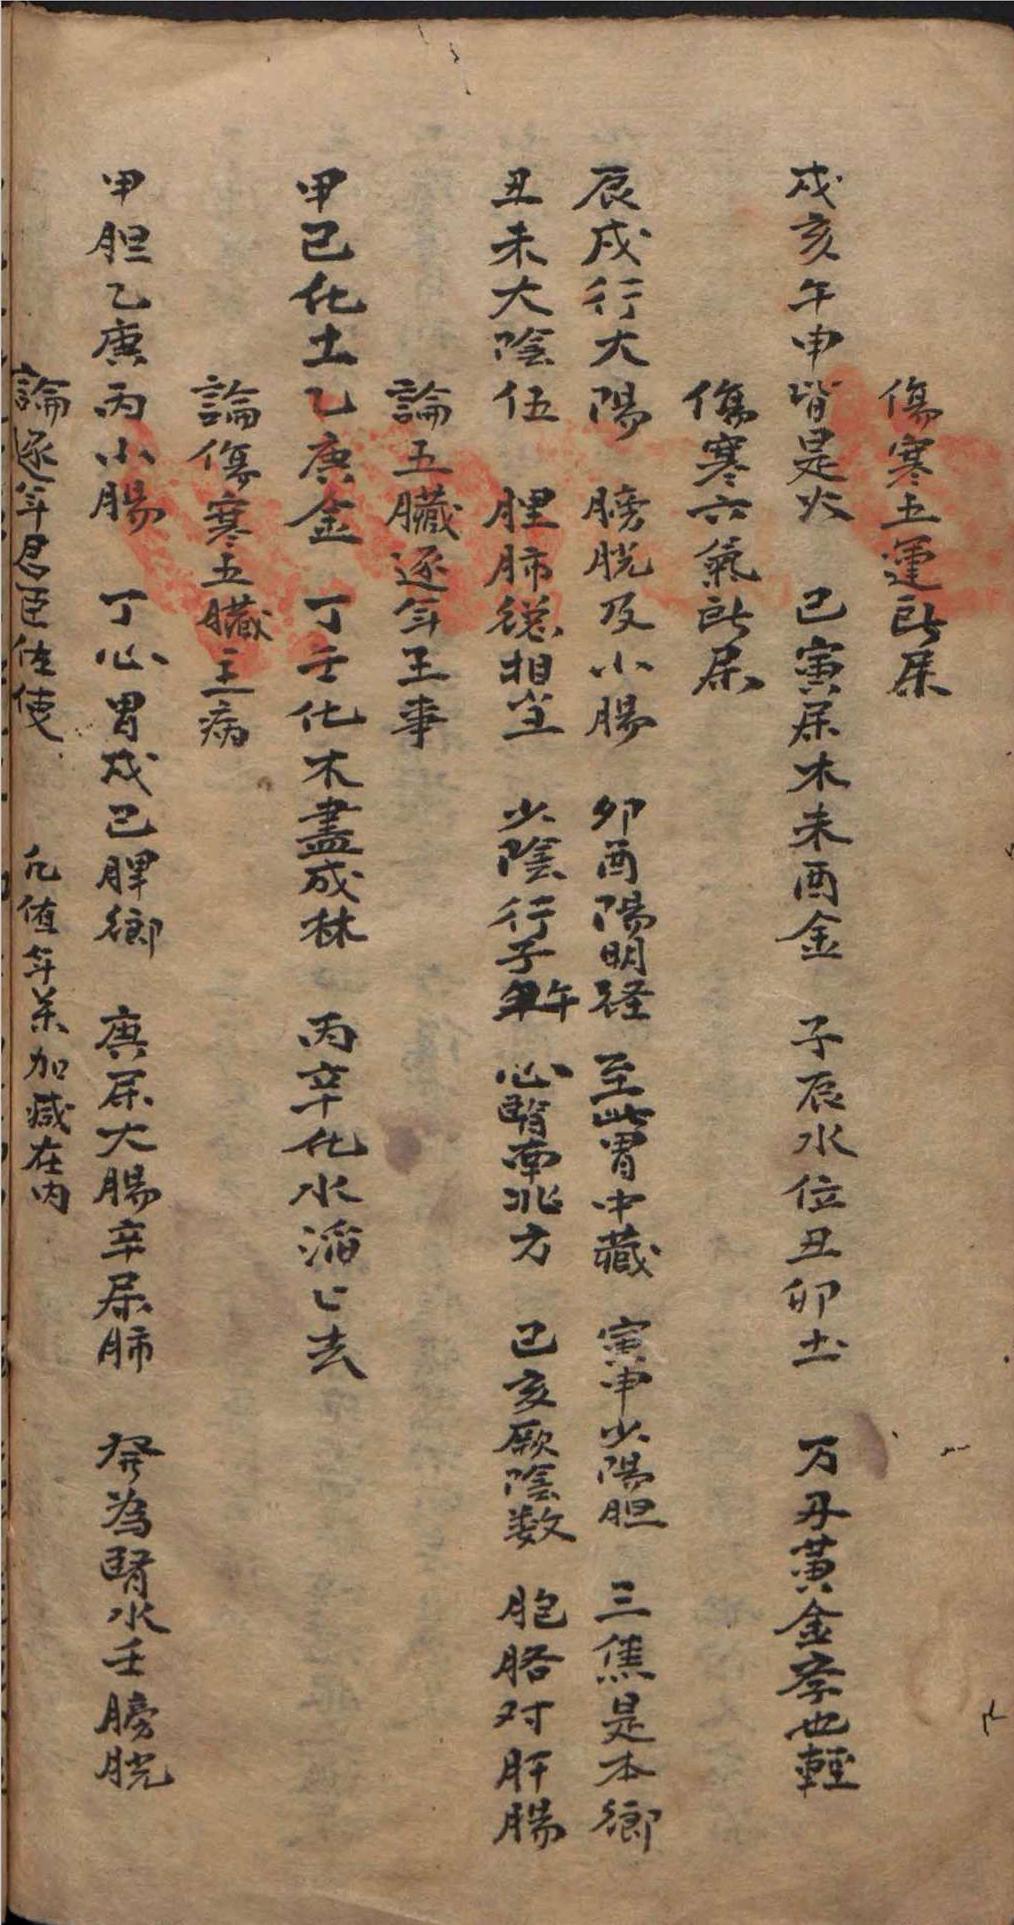 傷寒五運所屎
戍亥午申皆是火 己寅屎木未酉金 子辰水位丑卯土 万丹黄金李也輕
傷寒六氣所屎
辰戍行大陽 膀胱及小腸 卯酉陽明経 至此胃中藏 寅申少陽胆 三焦是本鄉
丑未大陰伍 脾肺㧾相當 少陰行子午 心腎南北方 己亥厥陰数 胞胳对肝腸
論五臟逐年主事
甲己化土乙庚金 丁壬化木盡成林 丙辛化水滔匕去
論傷寒五臟主病
甲胆乙庚丙小腸 丁心胃戍己脾鄉 庚屎大腸辛屎肺 癸為腎水壬膀胱
論逐年君臣佐使 凡值年葯加减在内